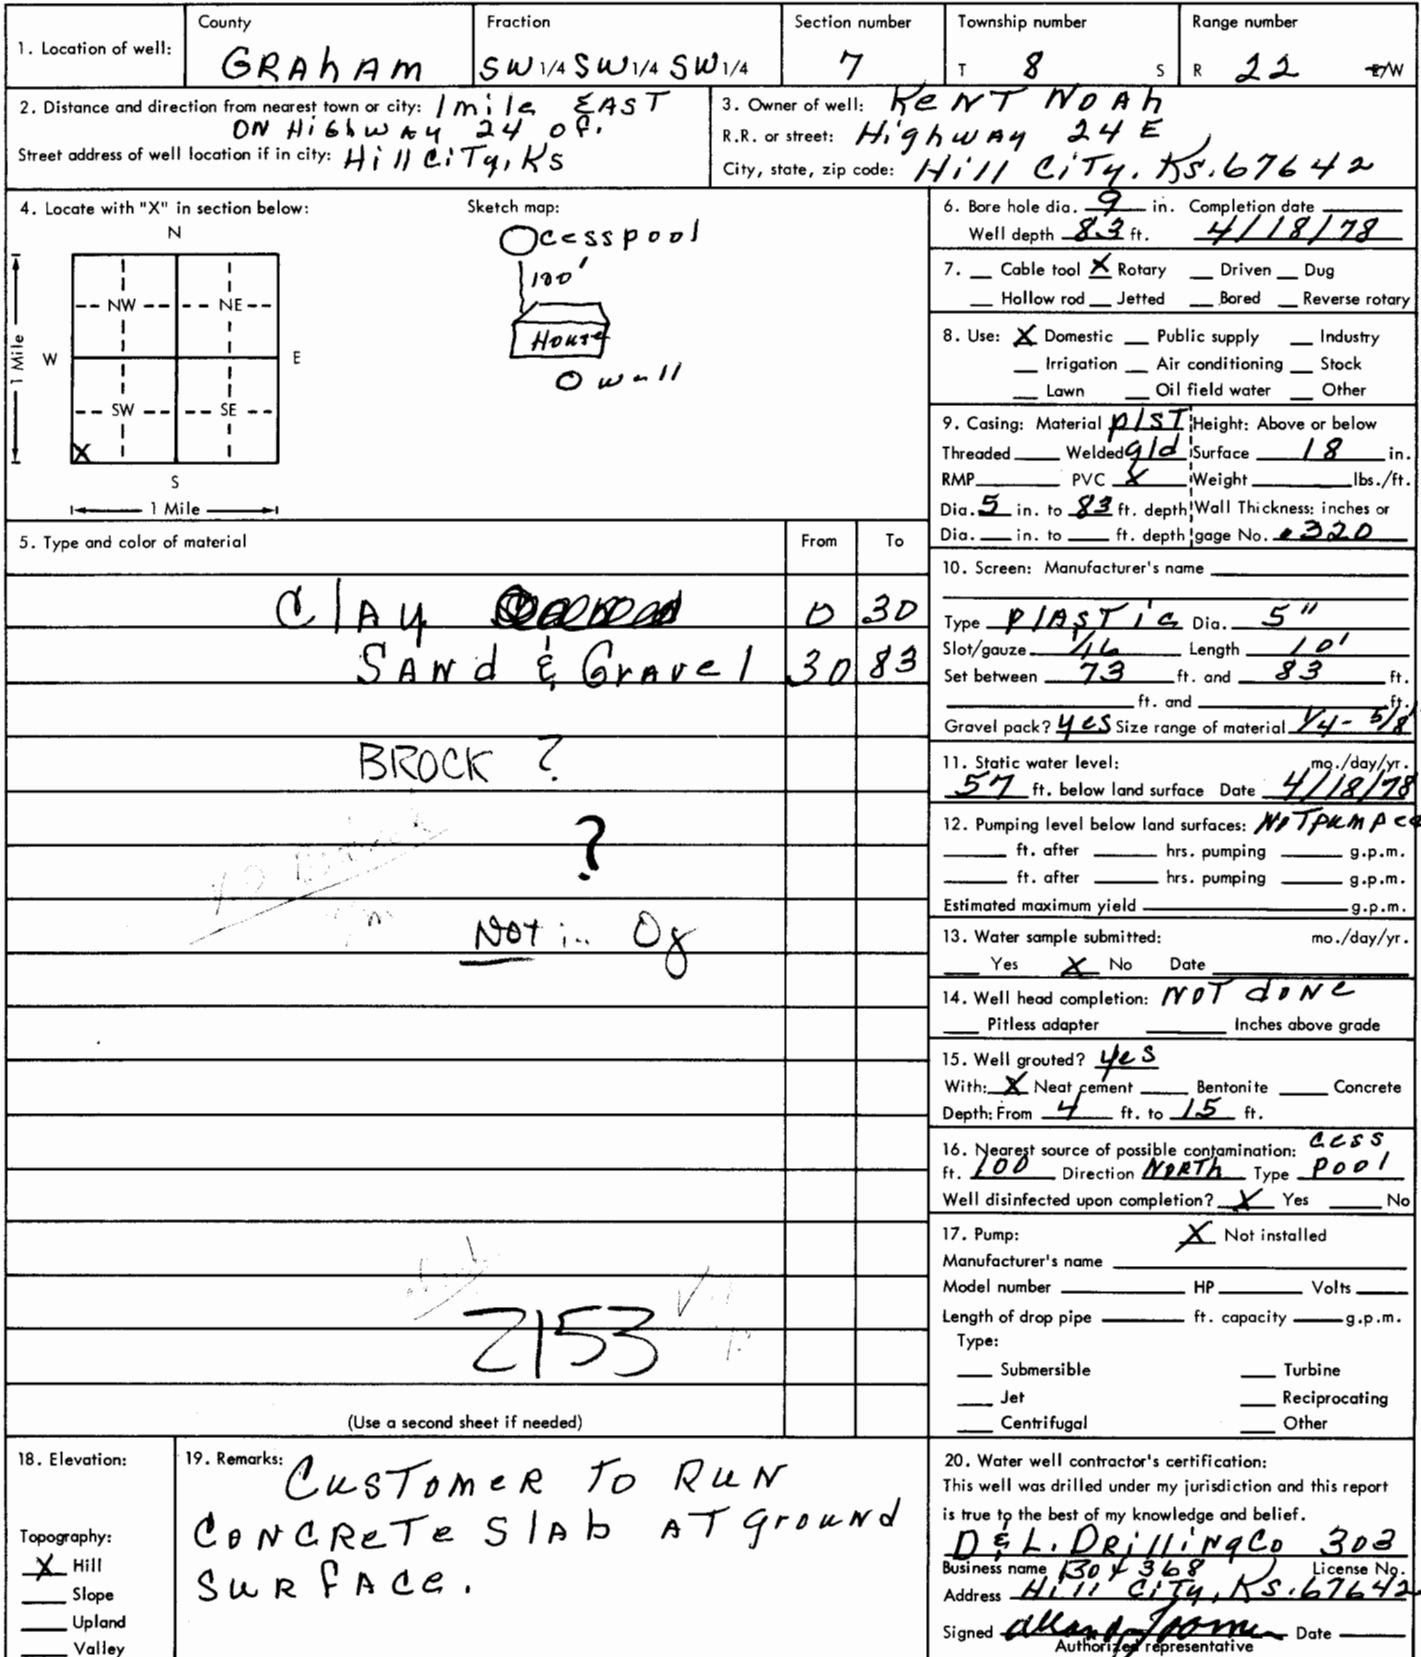 1. Location of well:
County
GRAhAM
Fraction
SW 1/4 SW 1/4 SW 1/4
Section number
7
Township number
T 8 S
Range number
R 22 E/W
2. Distance and direction from nearest town or city: 1 mile EAST
ON HiGhwAy 24 of.
Street address of well location if in city: Hill CiTy, Ks
3. Owner of well: KeNT NOAh
R.R. or street: Highway 24 E
City, state, zip code: Hill CiTy, Ks. 67642
4. Locate with "X" in section below:
N
NW NE
W E
SW SE
X
S
1 Mile
1 Mile
Sketch map:
cesspool
100'
House
well
5. Type and color of material From To
ClAy 0 30
SANd & GrAvel 30 83
BROCK ?
?
NOT in Og
2153
(Use a second sheet if needed)
6. Bore hole dia. 9 in. Completion date
Well depth 83 ft. 4/18/78
7. Cable tool X Rotary Driven Dug
Hollow rod Jetted Bored Reverse rotary
8. Use: X Domestic Public supply Industry
Irrigation Air conditioning Stock
Lawn Oil field water Other
9. Casing: Material plST Height: Above or below
Threaded Welded gld Surface 18 in.
RMP PVC X Weight lbs./ft.
Dia. 5 in. to 83 ft. depth Wall Thickness: inches or
Dia. in. to ft. depth gage No. .320
10. Screen: Manufacturer's name
Type plASTic Dia. 5"
Slot/gauze 1/16 Length 10'
Set between 73 ft. and 83 ft.
ft. and ft.
Gravel pack? yes Size range of material 1/4 - 5/8
11. Static water level: mo./day/yr.
57 ft. below land surface Date 4/18/78
12. Pumping level below land surfaces: NOT pumped
ft. after hrs. pumping g.p.m.
ft. after hrs. pumping g.p.m.
Estimated maximum yield g.p.m.
13. Water sample submitted: mo./day/yr.
Yes X No Date
14. Well head completion: NOT doNe
Pitless adapter Inches above grade
15. Well grouted? yes
With: X Neat cement Bentonite Concrete
Depth: From 4 ft. to 15 ft.
16. Nearest source of possible contamination: cess
ft. 100 Direction NORTh Type pool
Well disinfected upon completion? X Yes No
17. Pump: X Not installed
Manufacturer's name
Model number HP Volts
Length of drop pipe ft. capacity g.p.m.
Type:
Submersible Turbine
Jet Reciprocating
Centrifugal Other
18. Elevation:
Topography:
X Hill
Slope
Upland
Valley
19. Remarks: CusTomeR To RuN
CoNCReTe SlAb AT ground
SuRfAce.
20. Water well contractor's certification:
This well was drilled under my jurisdiction and this report
is true to the best of my knowledge and belief.
D & L. DRilliNg Co 303
Business name Box 368 License No.
Address Hill CiTy, Ks. 67642
Signed Date
Authorized representative